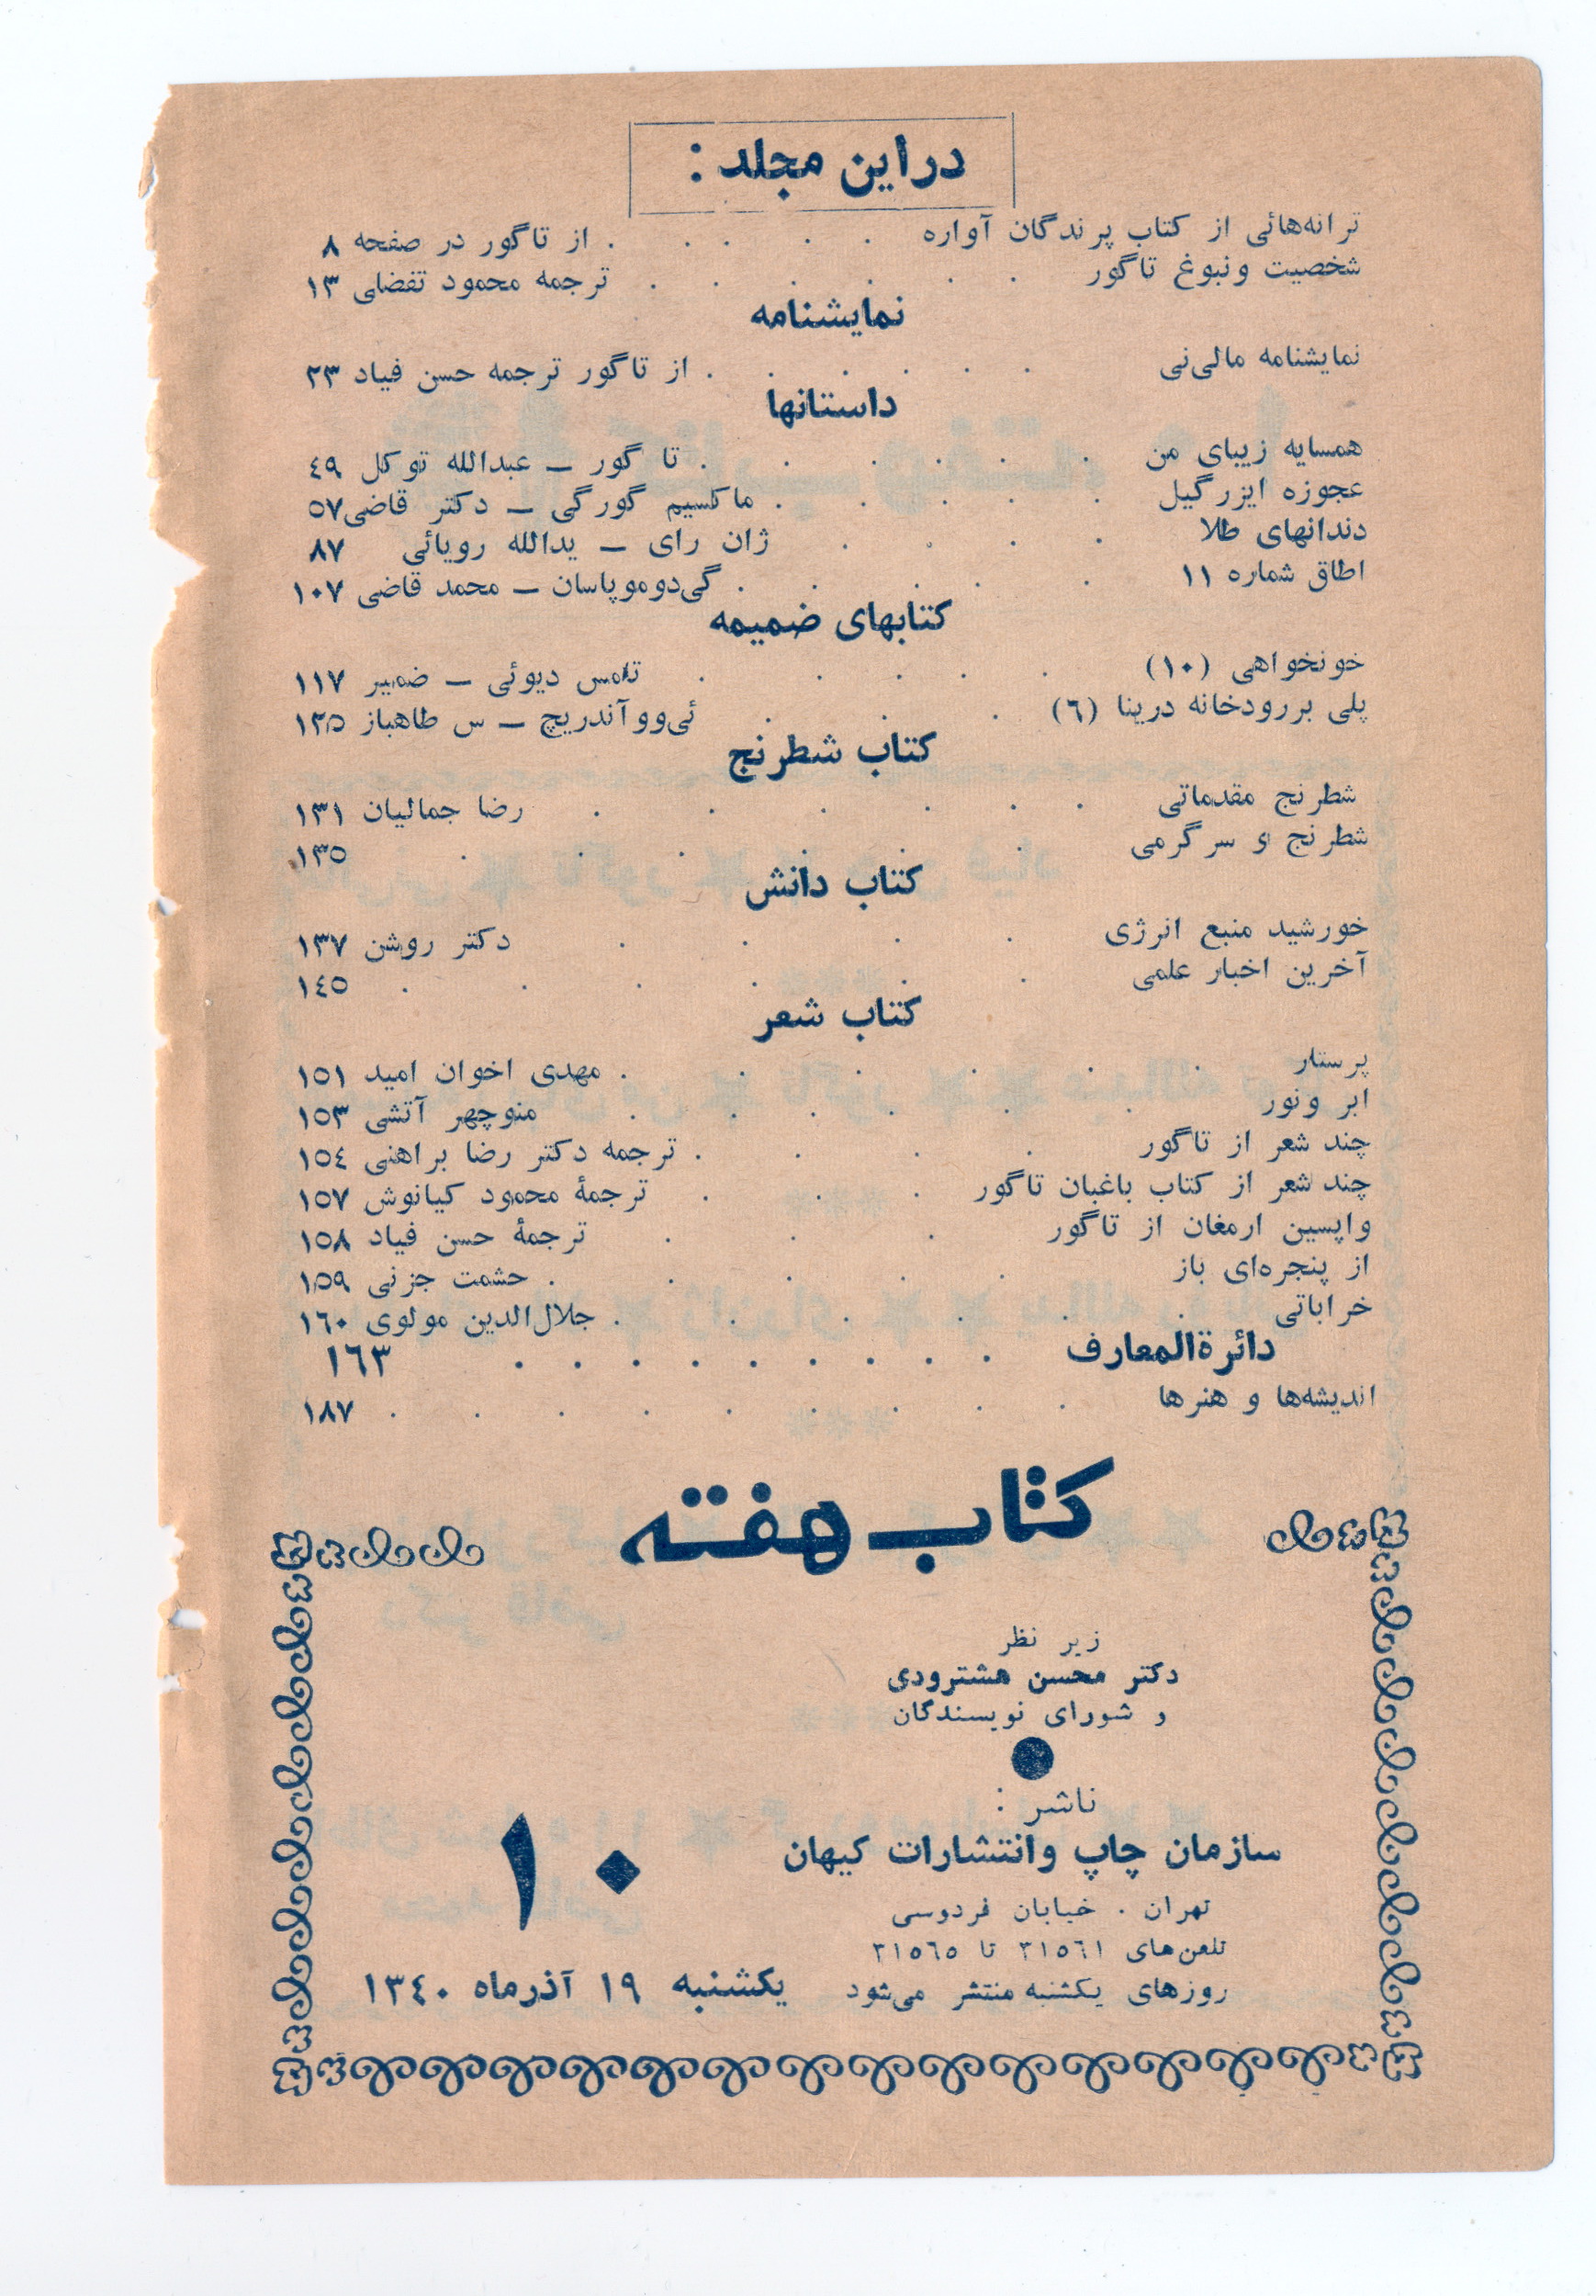 در این مجلد :
ترانه‌هائی از کتاب پرندگان آواره . . . . . از تاگور در صفحه ۸
شخصیت و نبوغ تاگور . . . . . . ترجمه محمود تفضلی ۱۳
نمایشنامه
نمایشنامه مالی‌نی . . . . . . از تاگور ترجمه حسن فیاد ۲۳
داستانها
همسایه زیبای من . . . . . . تا گور – عبدالله توکل ٤۹
عجوزه ایزرگیل . . . . . ماکسیم گورگی – دکتر قاضی ٥۷
دندانهای طلا . . . . ژان رای – یدالله رویائی ۸۷
اطاق شماره ۱۱ . . . . . گی‌دوموپاسان – محمد قاضی ۱۰۷
کتابهای ضمیمه
خونخواهی (۱۰) . . . . . تامس دیوئی – ضمیر ۱۱۷
پلی بررودخانه درینا (٦) . . . ئی‌وو آندریچ – س طاهباز ۱۲٥
کتاب شطرنج
شطرنج مقدماتی . . . . . . رضا جمالیان ۱۳۱
شطرنج و سرگرمی . . . . . . ۱۳٥
کتاب دانش
خورشید منبع انرژی . . . . دکتر روشن ۱۳۷
آخرین اخبار علمی . . . . . . ۱٤٥
کتاب شعر
پرستار . . . . . . مهدی اخوان امید ۱٥۱
ابر و نور . . . . . منوچهر آتشی ۱٥۳
چند شعر از تاگور . . . . ترجمه دکتر رضا براهنی ۱٥٤
چند شعر از کتاب باغبان تاگور . . . ترجمهٔ محمود کیانوش ۱٥۷
واپسین ارمغان از تاگور . . . ترجمهٔ حسن فیاد ۱٥۸
از پنجره‌ای باز . . . . . حشمت جزنی ۱٥۹
خراباتی . . . . . . جلال‌الدین مولوی ۱٦۰
دائرةالمعارف . . . . . . . . . ۱٦۳
اندیشه‌ها و هنرها . . . . . . . . . ۱۸۷
کتاب هفته
زیر نظر
دکتر محسن هشترودی
و شورای نویسندگان
ناشر :
سازمان چاپ وانتشارات کیهان
تهران . خیابان فردوسی
تلفن‌های ۳۱٥٦۱ تا ۳۱٥٦٥
روزهای یکشنبه منتشر می‌شود
۱۰
یکشنبه ۱۹ آذرماه ۱۳٤۰